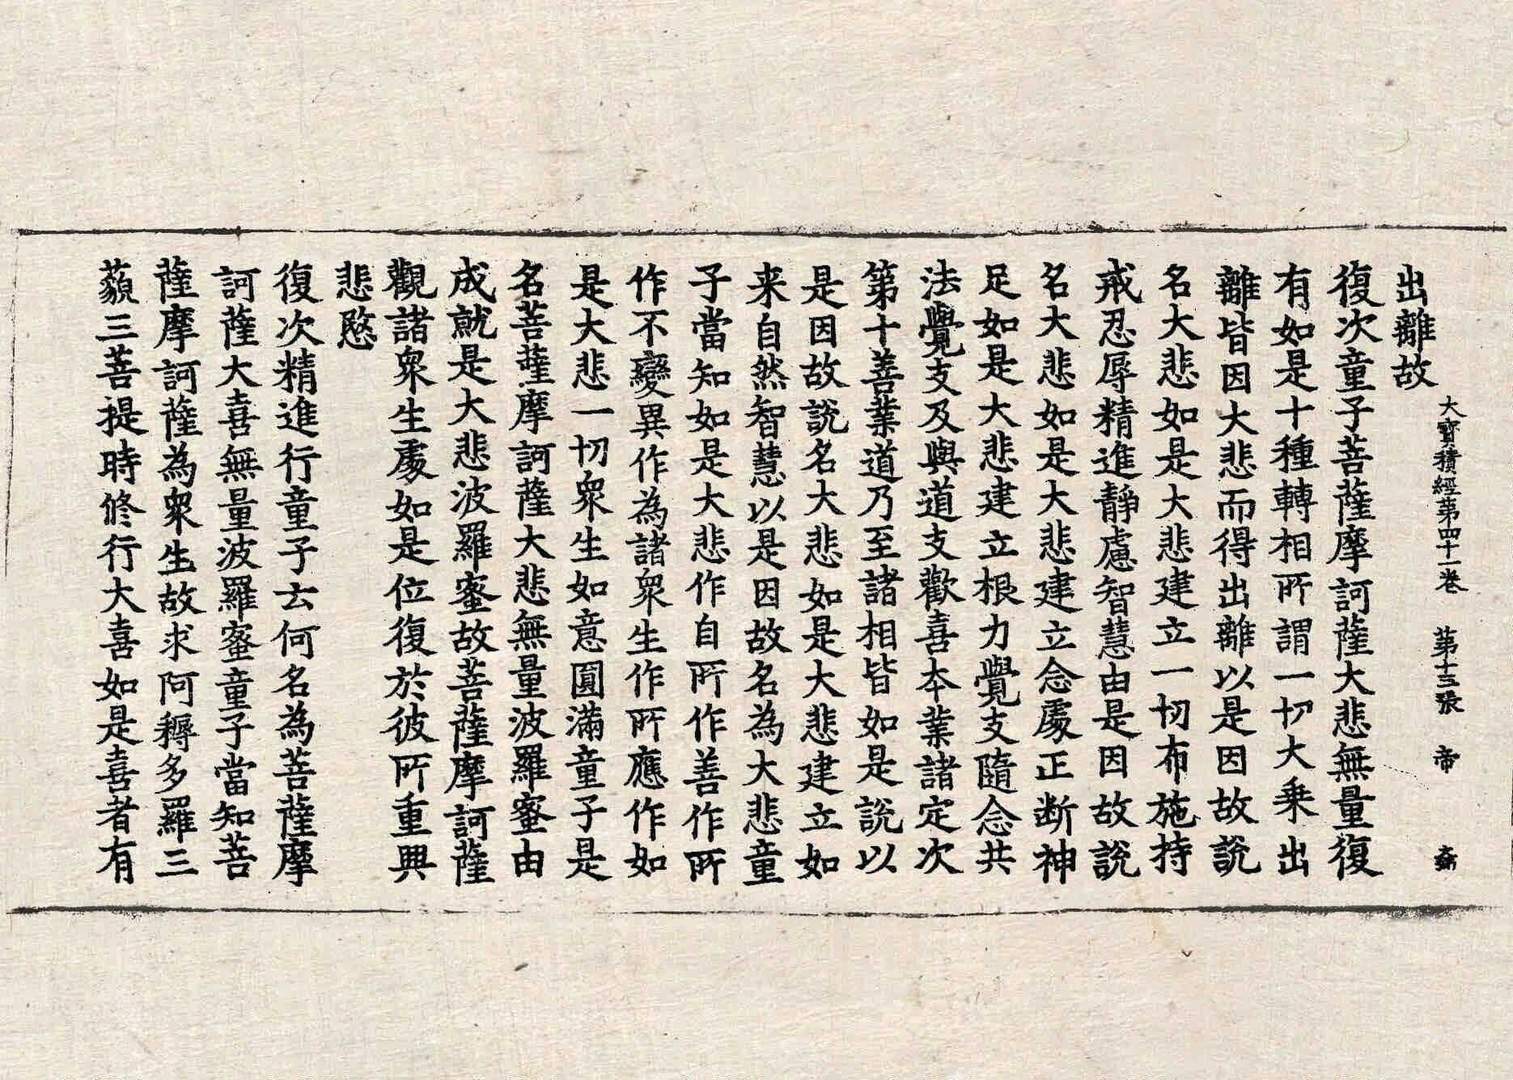 大寶積經第四十一卷 第十三張 帝
出離故
復次童子菩薩摩訶薩大悲無量復
有如是十種轉相所謂一切大乘出
離皆因大悲而得出離以是因故說
名大悲如是大悲建立一切布施持
戒忍辱精進靜慮智慧由是因故說
名大悲如是大悲建立念處正断神
足如是大悲建立根力覺支隨念共
法覺支及與道支歡喜本業諸定次
第十善業道乃至諸相皆如是說以
是因故說名大悲如是大悲建立如
来自然智慧以是因故名為大悲童
子當知如是大悲作自所作善作所
作不變異作為諸衆生作所應作如
是大悲一切衆生如意圓滿童子是
名菩薩摩訶薩大悲無量波羅蜜由
成就是大悲波羅蜜故菩薩摩訶薩
觀諸衆生處如是位復於彼所重興
悲愍
復次精進行童子云何名為菩薩摩
訶薩大喜無量波羅蜜童子當知菩
薩摩訶薩為衆生故求阿耨多羅三
藐三菩提時修行大喜如是喜者有